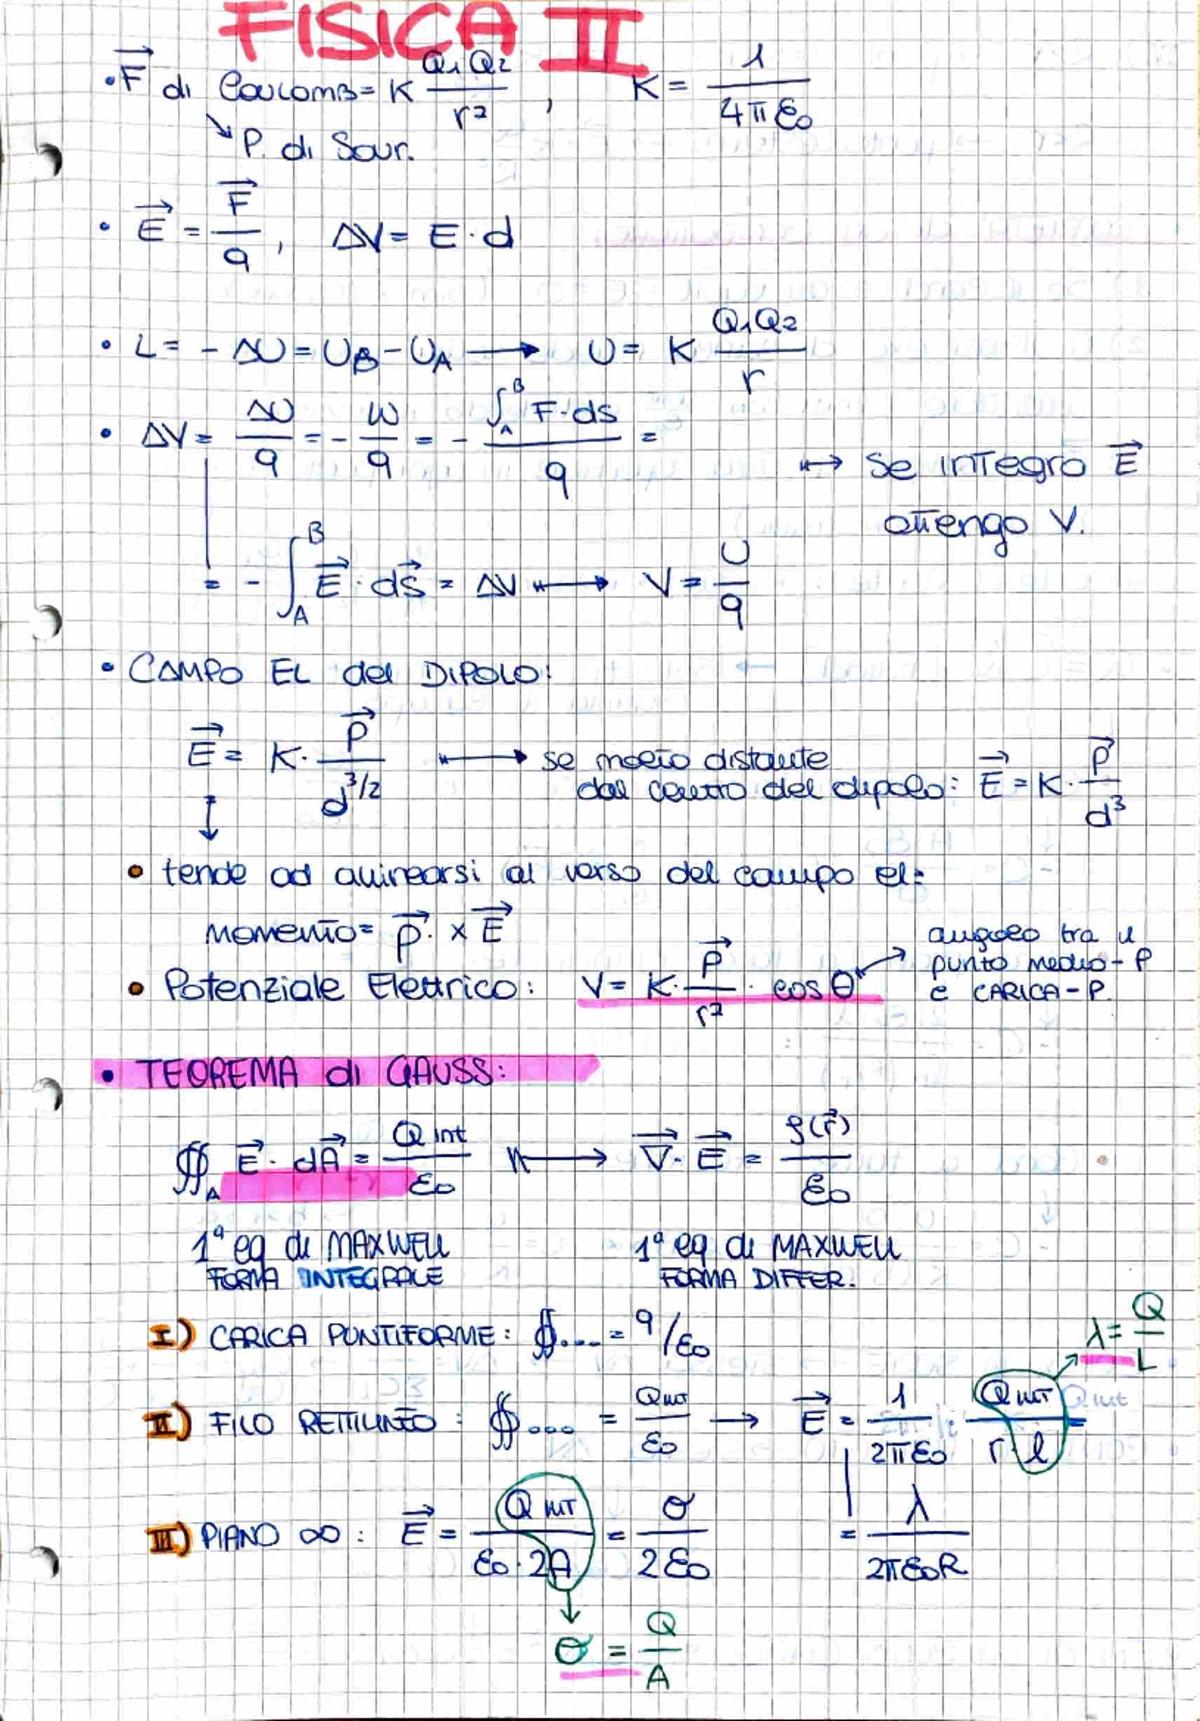 FISICA II
• F⃗ di Coulomb = K Q₁Q₂/r² , K = 1/4πε₀
↘ P. di Sovr.
• E⃗ = F⃗/q , ΔV = E · d
• L = - ΔU = U_B - U_A → U = K Q₁Q₂/r
• ΔV = ΔU/q = - W/q = - ∫_A^B F · ds / q =
↦ se integro E⃗
ottengo V.
= - ∫_A^B E⃗ · ds⃗ = ΔV ↦ V = U/q
• CAMPO EL del DIPOLO:
E⃗ = K · P⃗/d^3/2 ↦ se molto distante
dal centro del dipolo: E⃗ = K · P⃗/d³
• tende ad allinearsi al verso del campo el:
momento = P⃗ · × E⃗
• Potenziale Elettrico: V = K · P⃗/r² · cos θ
angolo tra il
punto medio - P
e CARICA - P.
• TEOREMA di GAUSS:
∯_A E⃗ · dA⃗ = Q int/ε₀ ↦ ∇⃗ · E⃗ = ρ(r⃗)/ε₀
1ª eq di MAXWELL 1ª eq di MAXWELL
FORMA INTEGRALE FORMA DIFFER.
I) CARICA PUNTIFORME: ∯.... = q/ε₀
λ = Q/L
II) FILO RETTILINEO : ∯... = Q int/ε₀ → E⃗ = 1/2πε₀ · Q int/r · l =
= λ/2πε₀R
III) PIANO ∞ : E⃗ = Q int/ε₀ · 2A = σ/2ε₀
σ = Q/A